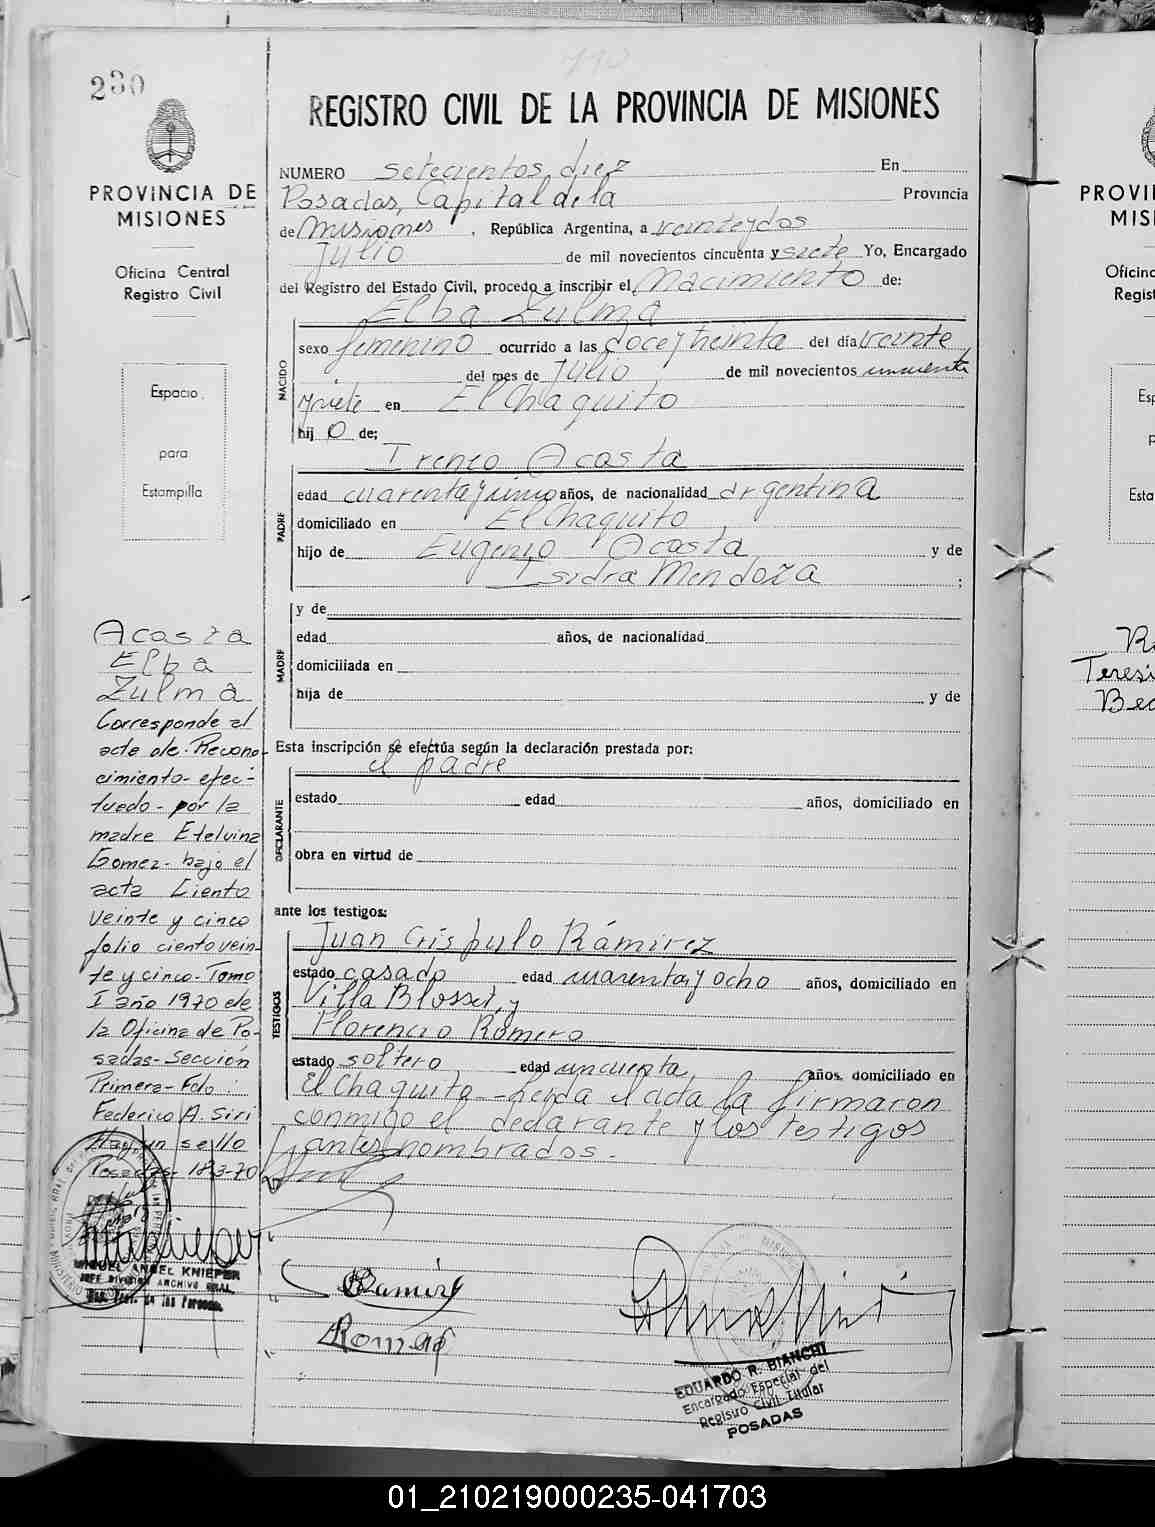 230
710
REGISTRO CIVIL DE LA PROVINCIA DE MISIONES
PROVINCIA DE
MISIONES
Oficina Central
Registro Civil
Espacio
para
Estampilla
NUMERO setecientos diez En
Posadas, Capital de la Provincia
de Misiones, República Argentina, a veinte y dos
Julio de mil novecientos cincuenta y siete Yo, Encargado
del Registro del Estado Civil, procedo a inscribir el Nacimiento de:
NACIDO
Elba Zulma
sexo femenino ocurrido a las doce y treinta del día veinte
del mes de Julio de mil novecientos cincuenta
y siete en El Chaquito
hij o de:
PADRE
Ireneo Acosta
edad cuarenta y cinco años, de nacionalidad argentina
domiciliado en El Chaquito
hijo de Eugenio Acosta y de
Isidra Mendoza ;
MADRE
y de
edad años, de nacionalidad
domiciliada en
hija de y de
Esta inscripción se efectúa según la declaración prestada por:
DECLARANTE
el padre
estado edad años, domiciliado en
obra en virtud de
ante los testigos:
TESTIGOS
Juan Crispulo Rámirez
estado casado edad cuarenta y ocho años, domiciliado en
Villa Blosset, y
Florencio Romero
estado soltero edad cincuenta años, domiciliado en
El Chaquito - leida el acta la firmaron
conmigo el declarante y los testigos
antes nombrados.
Acosta
Elba
Zulma
Corresponde al
acta de Recono-
cimiento efec-
tuado - por la
madre Etelvina
Gomez - bajo el
acta Ciento
veinte y cinco
folio ciento vein-
te y cinco - Tomo
I año 1970 de
la Oficina de Po-
sadas - Sección
Primera - Fdo:
Federico A. Siri
Hay un sello
Posadas - 18-3-70
MIGUEL ANGEL KNIEPER
JEFE DIVISION ARCHIVO GRAL.
Ramirez
Romero
EDUARDO R. BIANCHI
Encargado Especial del
Registro Civil Titular
POSADAS
PROVI
MISI
Oficina
Regist
Esp
p
Esta
Teresi
01_210219000235-041703